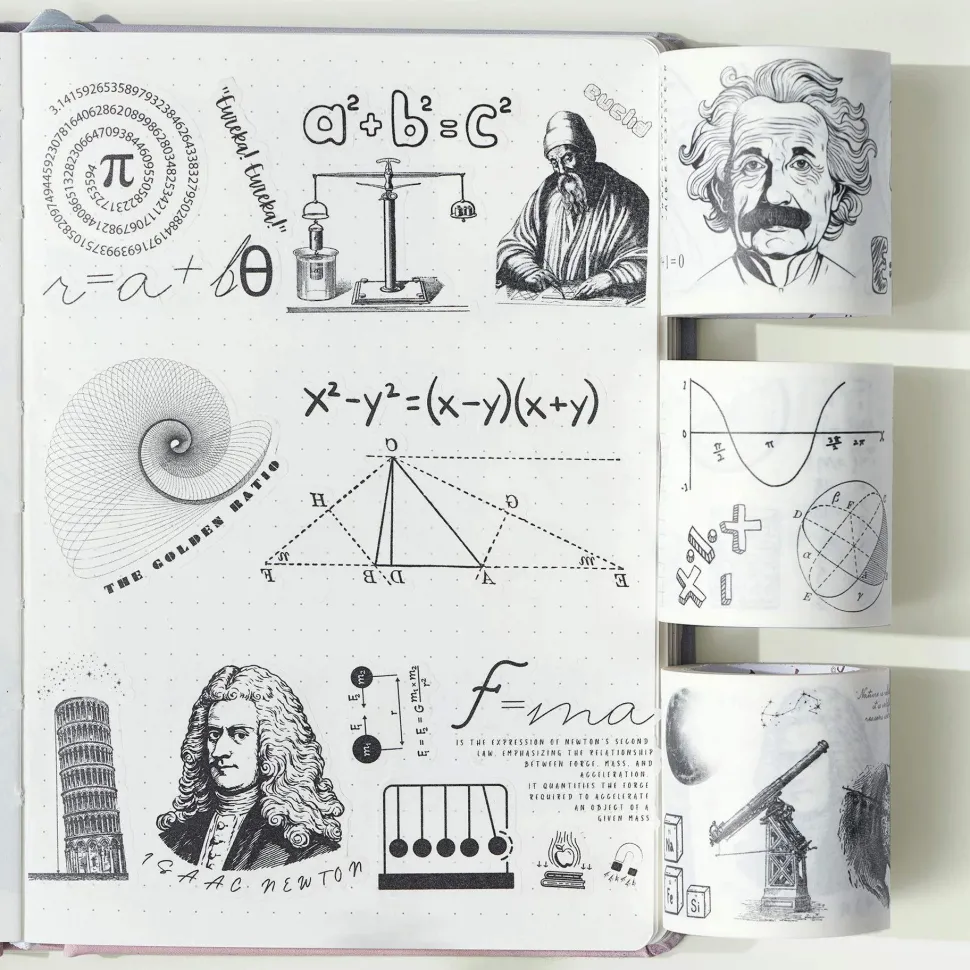 3.1415926535897932384626433832795028841971693993751058209749445923078164062862089986280348253421170679821480865132823066470938446095505822317253594
π
"Eureka! Eureka!"
a²+b²=c²
Euclid
r=a+bθ
THE GOLDEN RATIO
x²-y²=(x-y)(x+y)
G
H G
n m
F B D A E
ISAAC NEWTON
m₂
F₂
F₁
m₁
r
F₁ = F₂ = G m₁ × m₂ / r²
f=ma
IS THE EXPRESSION OF NEWTON'S SECOND
LAW, EMPHASIZING THE RELATIONSHIP
BETWEEN FORCE, MASS, AND
ACCELERATION.
IT QUANTIFIES THE FORCE
REQUIRED TO ACCELERATE
AN OBJECT OF A
GIVEN MASS
+1=0
1
0
-1
π/2 π 3π/2 2π X
D β F
α
E A γ
"Nature is
Na
Fe Si